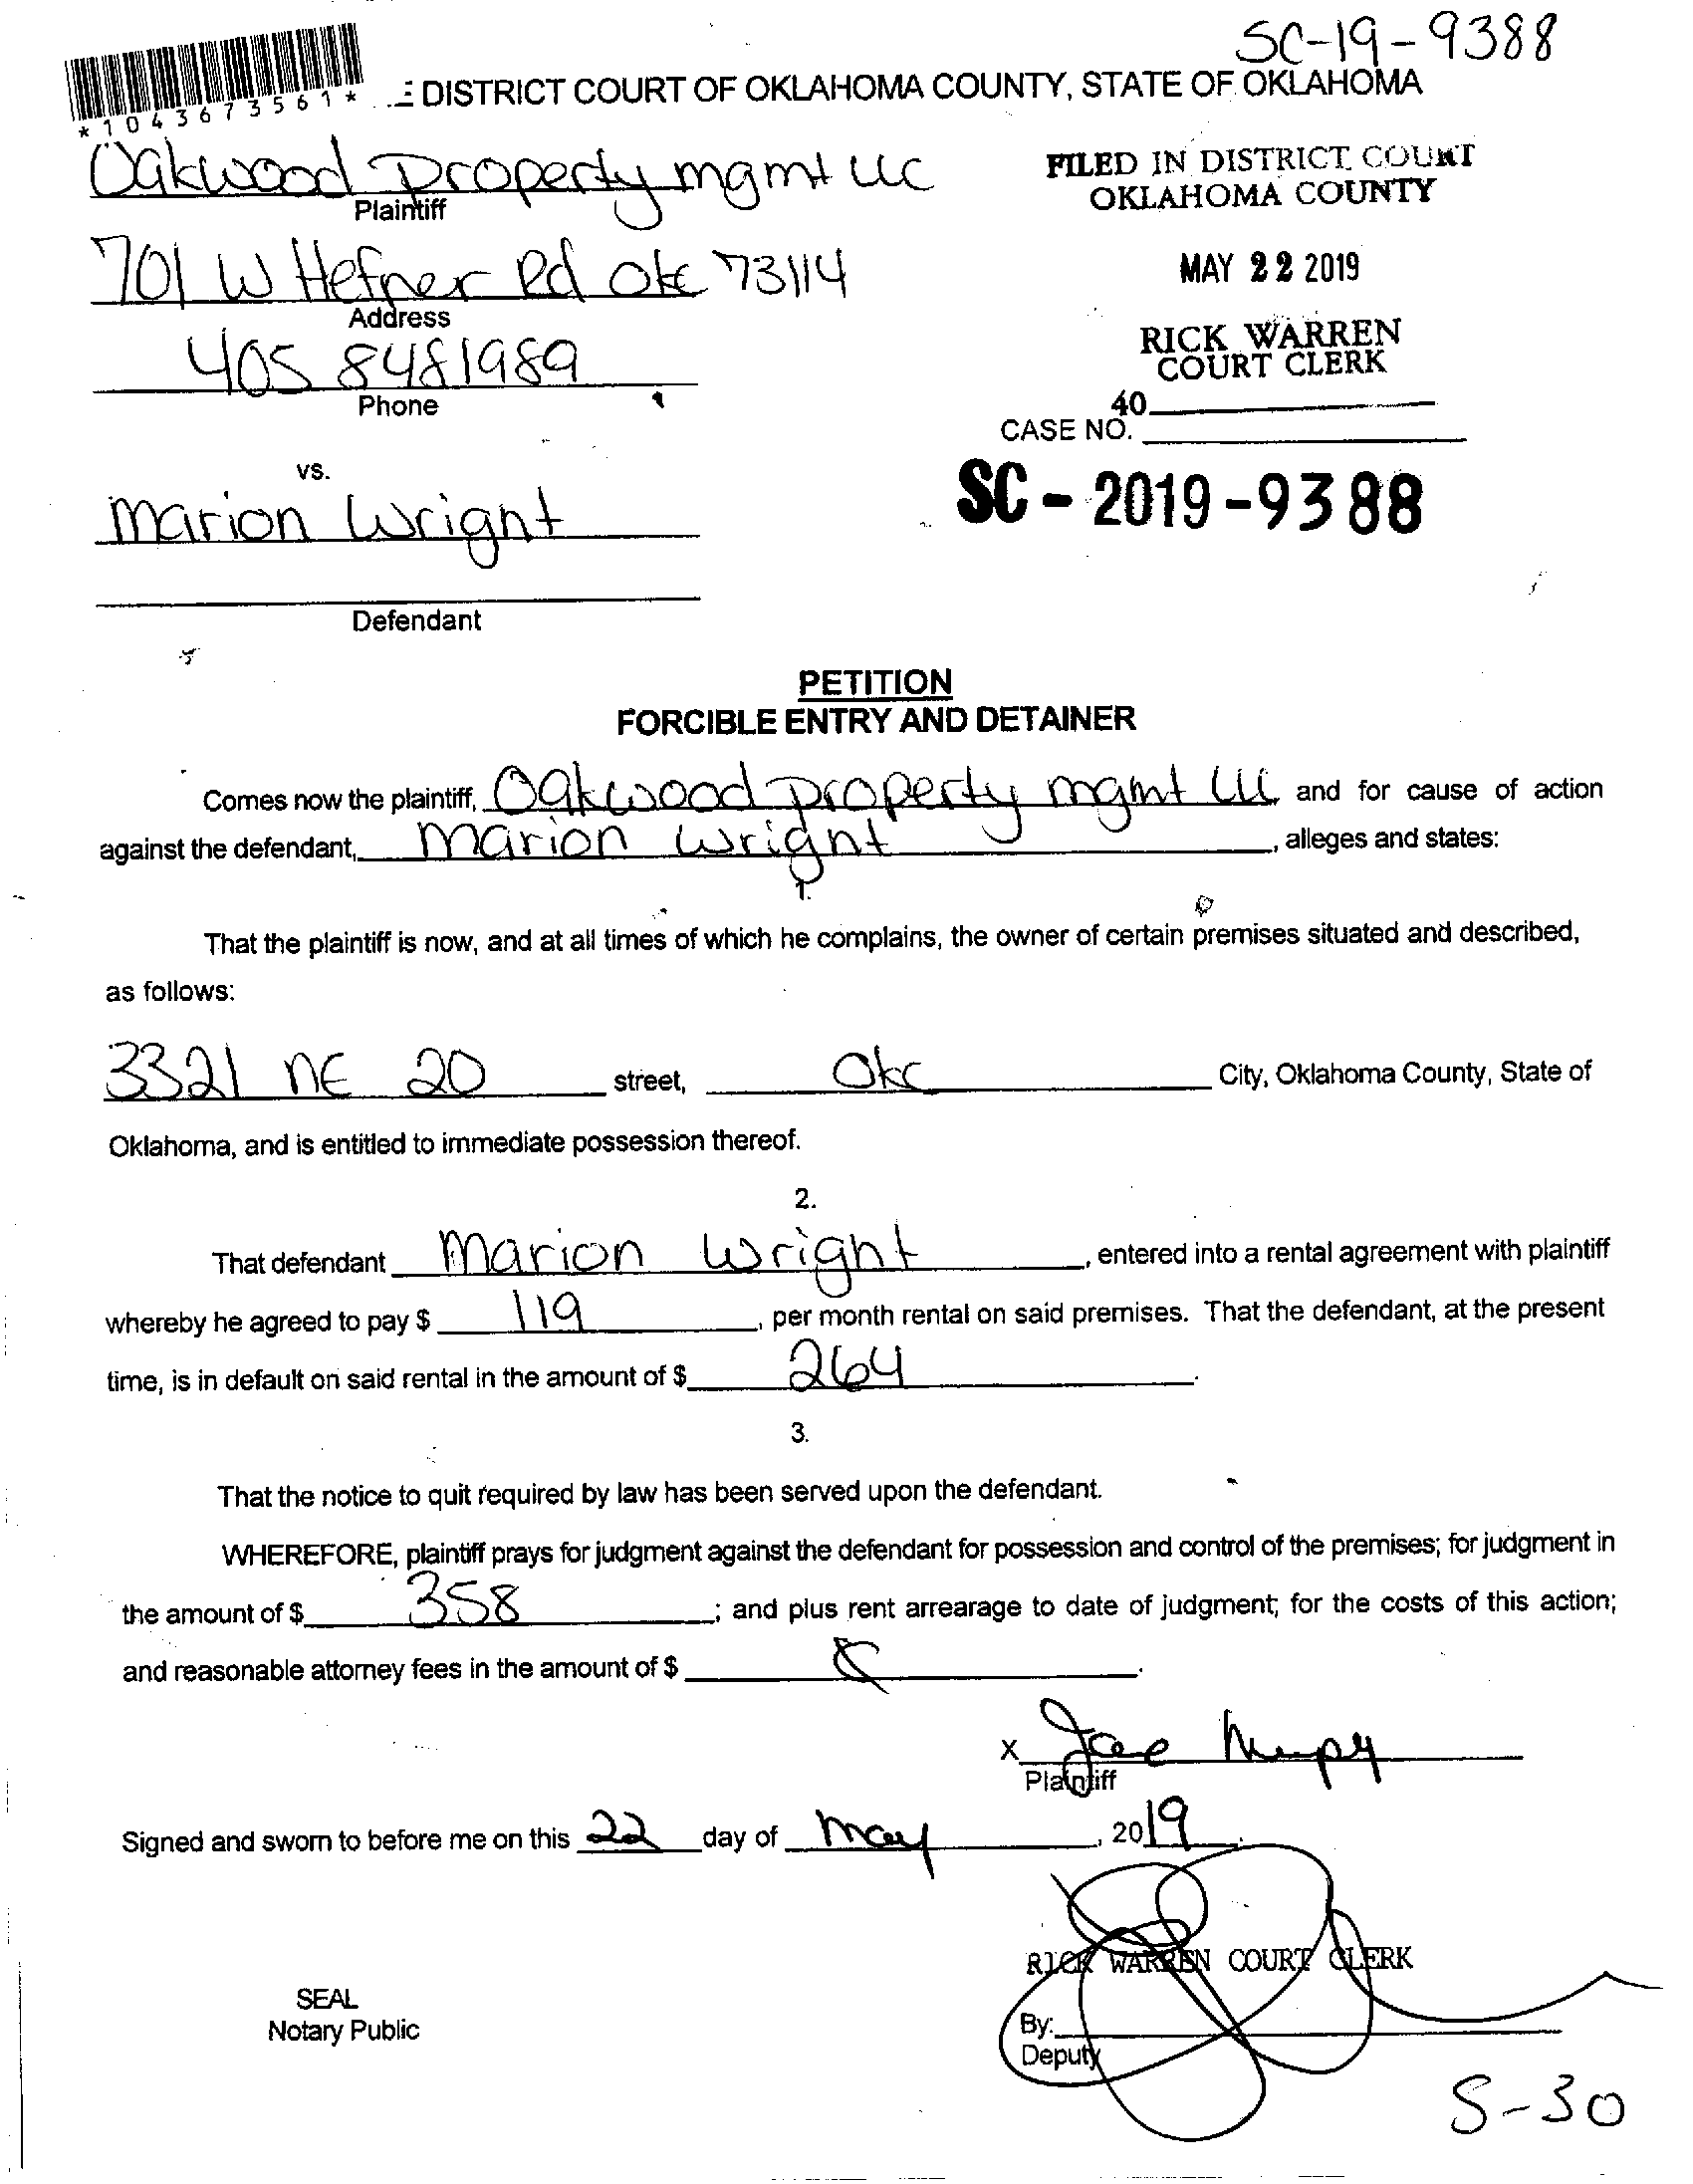 SC-19-9388
*1043673561*
E DISTRICT COURT OF OKLAHOMA COUNTY, STATE OF OKLAHOMA
Oakwood Property mgmt LLC
Plaintiff
FILED IN DISTRICT COURT
OKLAHOMA COUNTY
701 W Hefner Rd Okc 73114
Address
MAY 22 2019
405 8481989
Phone
RICK WARREN
COURT CLERK
40
CASE NO.
vs.
SC - 2019 - 9388
Marion Wright
Defendant
PETITION
FORCIBLE ENTRY AND DETAINER
Comes now the plaintiff, Oakwood Property mgmt LLC and for cause of action
against the defendant, Marion Wright, alleges and states:
1.
That the plaintiff is now, and at all times of which he complains, the owner of certain premises situated and described,
as follows:
3321 NE 20 street, Okc City, Oklahoma County, State of
Oklahoma, and is entitled to immediate possession thereof.
2.
That defendant Marion Wright, entered into a rental agreement with plaintiff
whereby he agreed to pay $ 119, per month rental on said premises. That the defendant, at the present
time, is in default on said rental in the amount of $ 264.
3.
That the notice to quit required by law has been served upon the defendant.
WHEREFORE, plaintiff prays for judgment against the defendant for possession and control of the premises; for judgment in
the amount of $ 358; and plus rent arrearage to date of judgment; for the costs of this action;
and reasonable attorney fees in the amount of $ .
X
Plaintiff
Signed and sworn to before me on this 22 day of May, 2019.
RICK WARREN COURT CLERK
SEAL
Notary Public
By:
Deputy
5-30